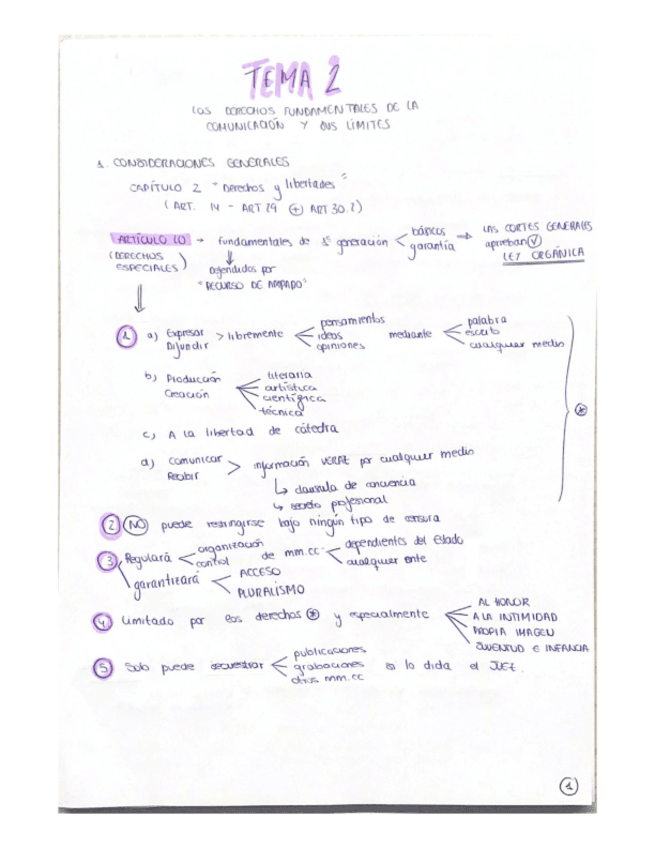 TEMA 2
LOS DERECHOS FUNDAMENTALES DE LA
COMUNICACIÓN Y SUS LÍMITES
1. CONSIDERACIONES GENERALES
CAPÍTULO 2 "Derechos y libertades"
(ART. 14 - ART 29 + ART 30.2)
ARTÍCULO 20 → fundamentales de 1ª generación < básicos garantía → LAS CORTES GENERALES aprueban LEY ORGÁNICA
(DERECHOS ESPECIALES)
Defendidos por
"RECURSO DE AMPARO"
1 a) Expresar Difundir > libremente < pensamientos ideas opiniones mediante < palabra escrito cualquier medio
b) Producción Creación < literaria artística científica técnica
c) A la libertad de cátedra
d) Comunicar Recibir > información VERAZ por cualquier medio
↳ clausula de conciencia
↳ secreto profesional
2 NO puede restringirse bajo ningún tipo de censura
3 Regulará < organización control de mm.cc < dependientes del Estado cualquier ente
garantizará < ACCESO PLURALISMO
4 Limitado por los derechos * y especialmente < AL HONOR A LA INTIMIDAD PROPIA IMAGEN JUVENTUD E INFANCIA
5 Solo puede secuestrar < publicaciones grabaciones otros mm.cc si lo dicta el JUEZ.
1